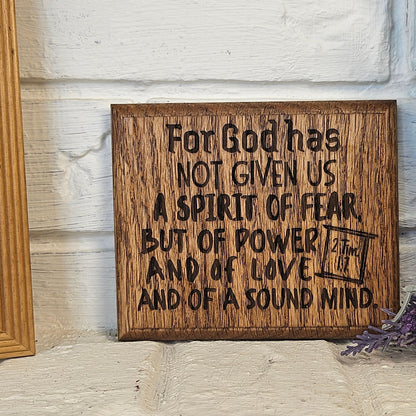 For God has
NOT GIVEN US
A SPIRIT OF FEAR,
BUT OF POWER
AND OF LOVE
AND OF A SOUND MIND.
2 TIM.
1:7